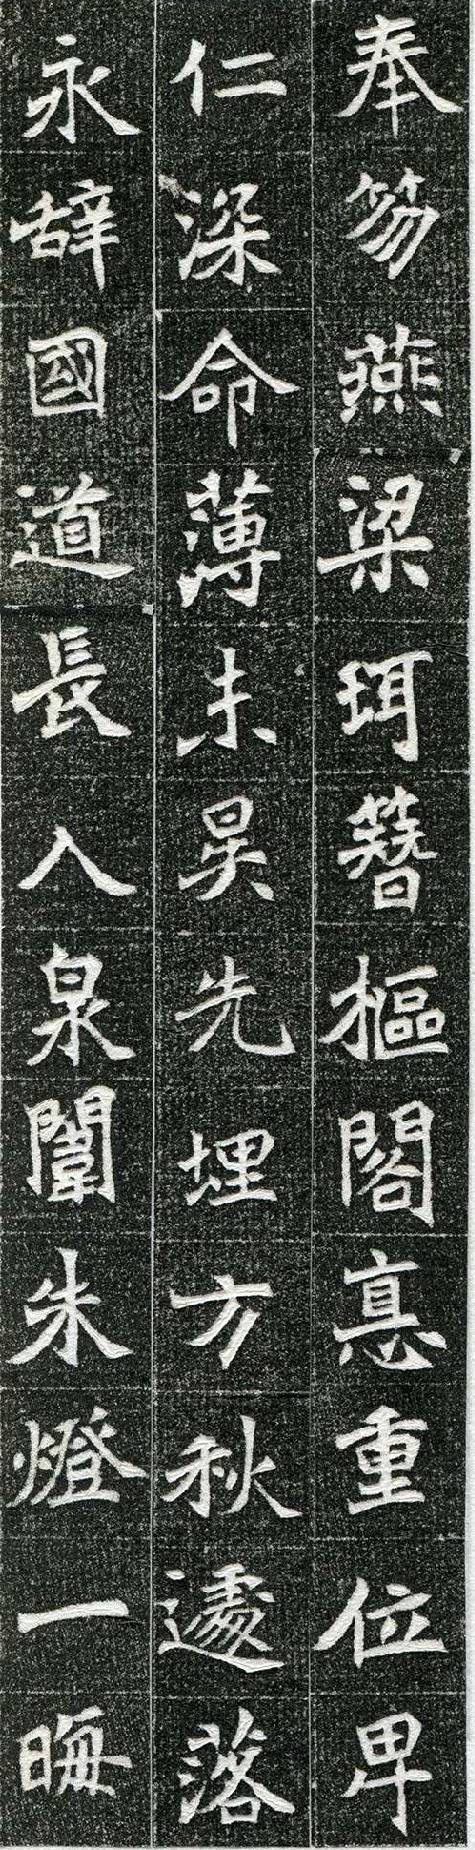 奉笏燕梁珥簪樞閣惪重位卑
仁深命薄未吴先埋方秋遽落
永辞國道長入泉闈朱燈一晦